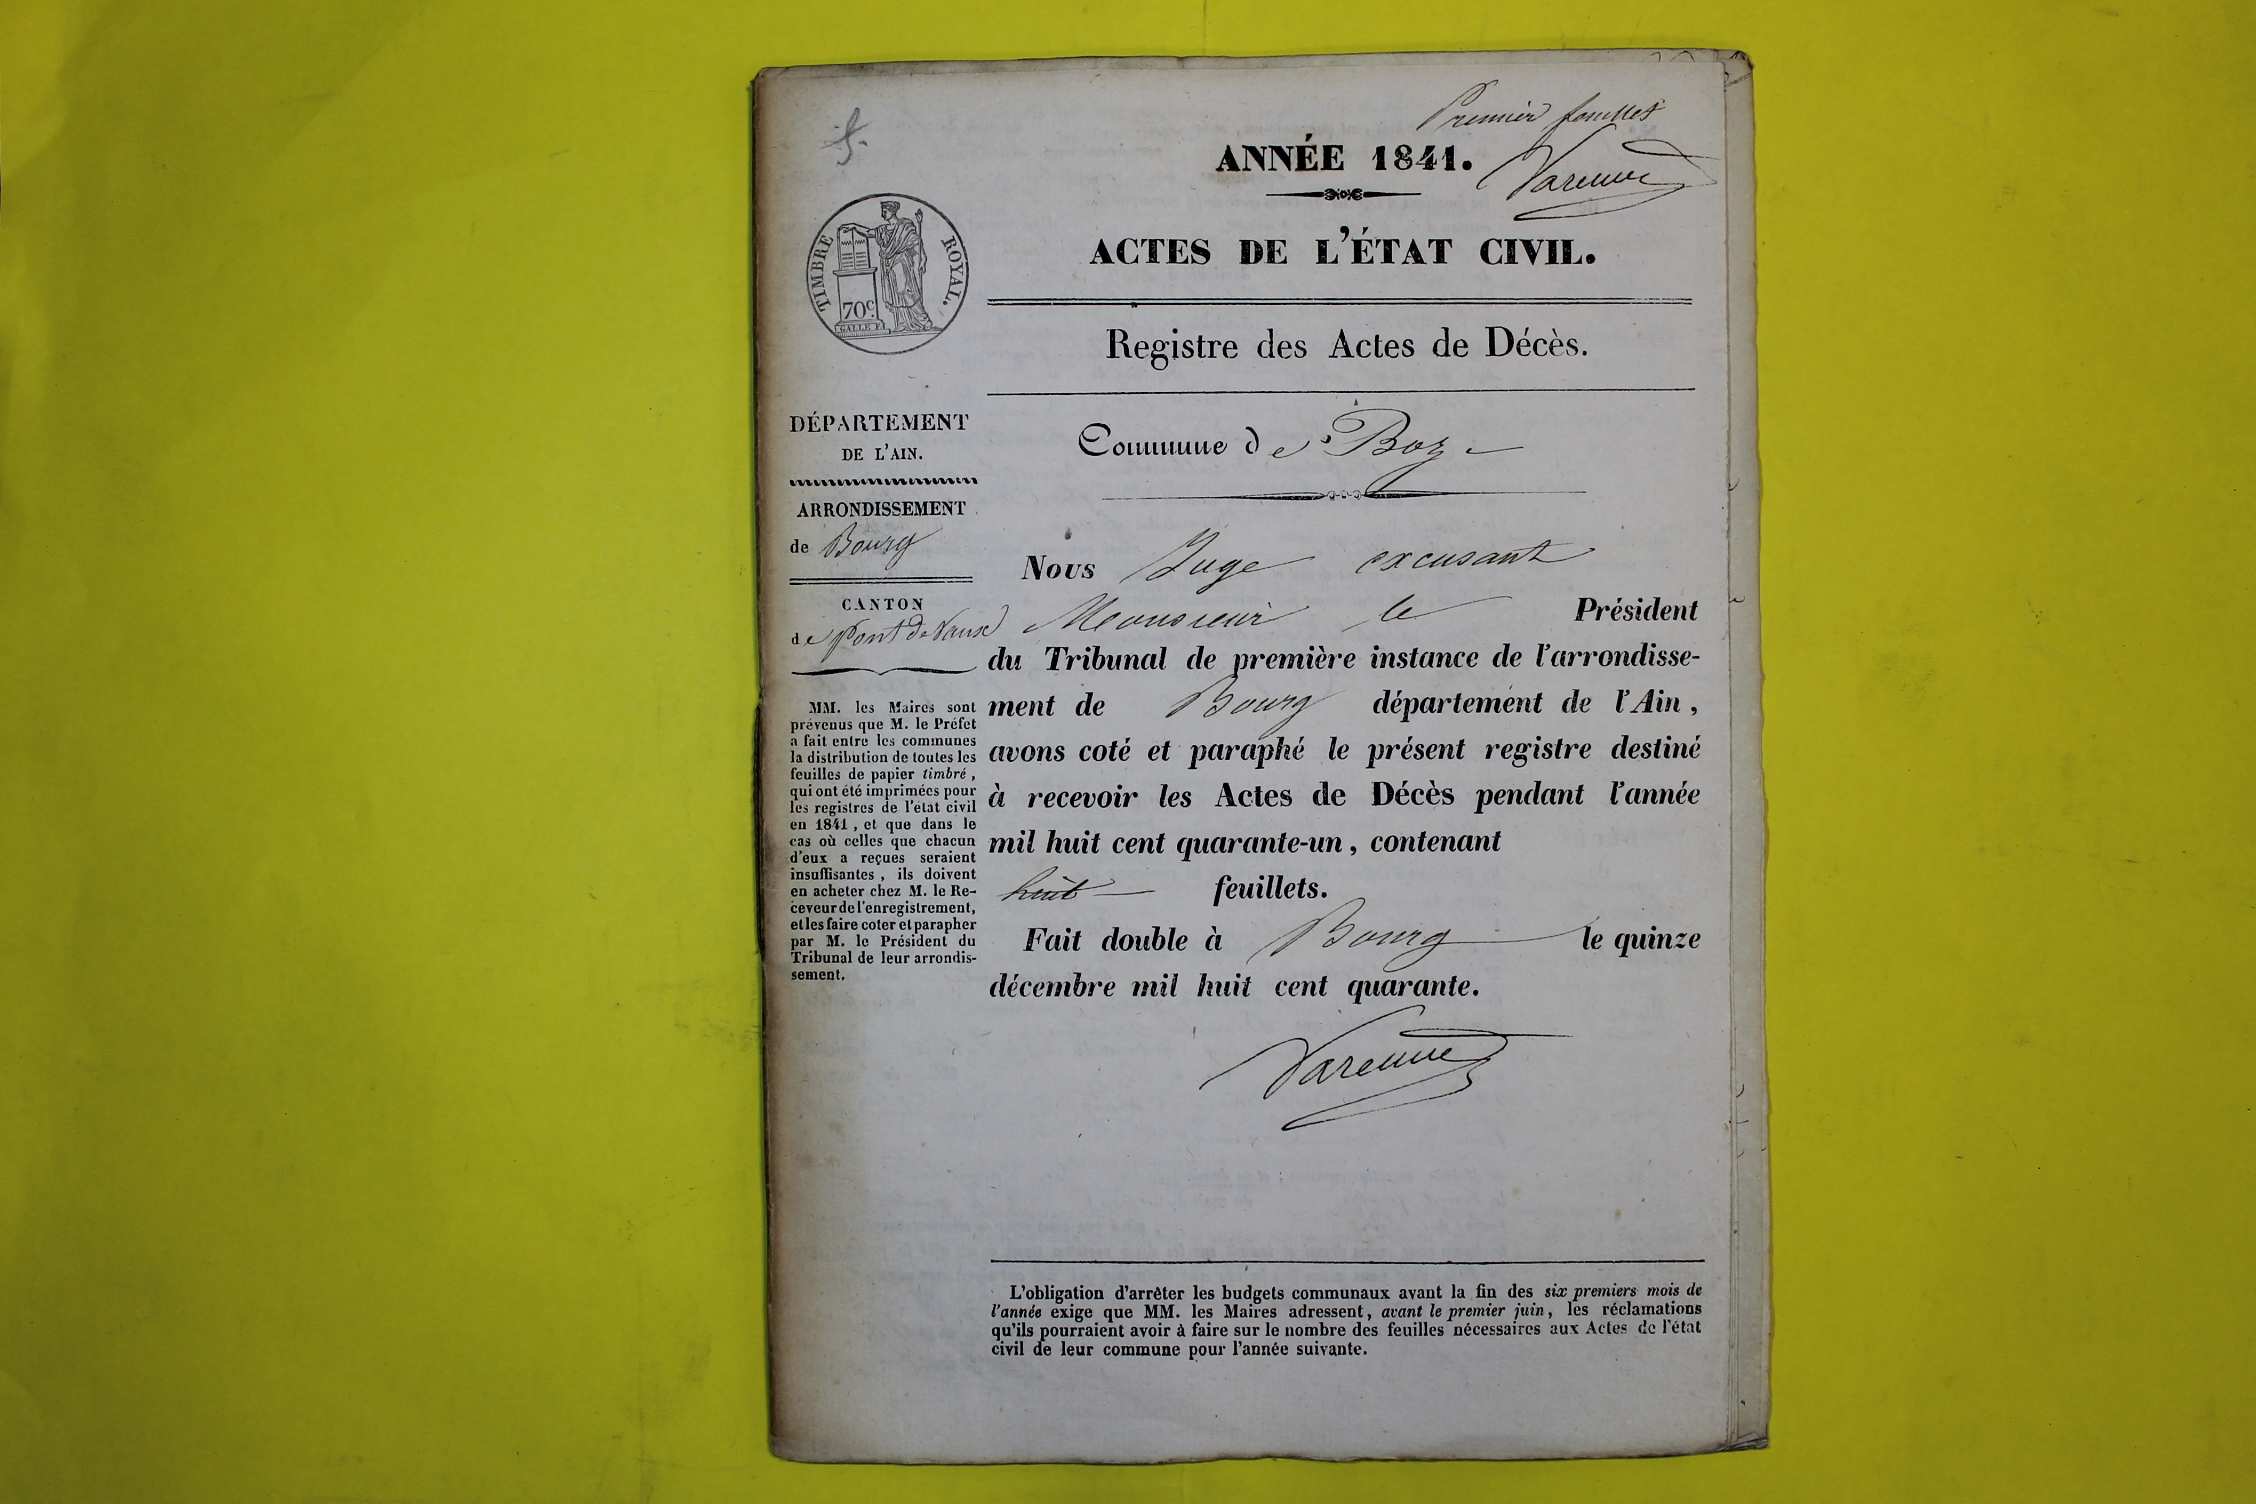 Premier feuillet
Varenne
ANNÉE 1841.
ACTES DE L'ÉTAT CIVIL.
TIMBRE ROYAL.
70c.
GALLE F.
Registre des Actes de Décès.
DÉPARTEMENT
DE L'AIN.
ARRONDISSEMENT
de Bourg
CANTON
de Pont de Vaux
MM. les Maires sont
prévenus que M. le Préfet
a fait entre les communes
la distribution de toutes les
feuilles de papier timbré,
qui ont été imprimées pour
les registres de l'état civil
en 1841, et que dans le
cas où celles que chacun
d'eux a reçues seraient
insuffisantes, ils doivent
en acheter chez M. le Re-
ceveur de l'enregistrement,
et les faire coter et parapher
par M. le Président du
Tribunal de leur arrondis-
sement.
Commune de Boz
Nous Juge excusant
Monsieur le Président
du Tribunal de première instance de l'arrondisse-
ment de Bourg département de l'Ain,
avons coté et paraphé le présent registre destiné
à recevoir les Actes de Décès pendant l'année
mil huit cent quarante-un, contenant
huit feuillets.
Fait double à Bourg le quinze
décembre mil huit cent quarante.
Varenne
L'obligation d'arrêter les budgets communaux avant la fin des six premiers mois de
l'année exige que MM. les Maires adressent, avant le premier juin, les réclamations
qu'ils pourraient avoir à faire sur le nombre des feuilles nécessaires aux Actes de l'état
civil de leur commune pour l'année suivante.